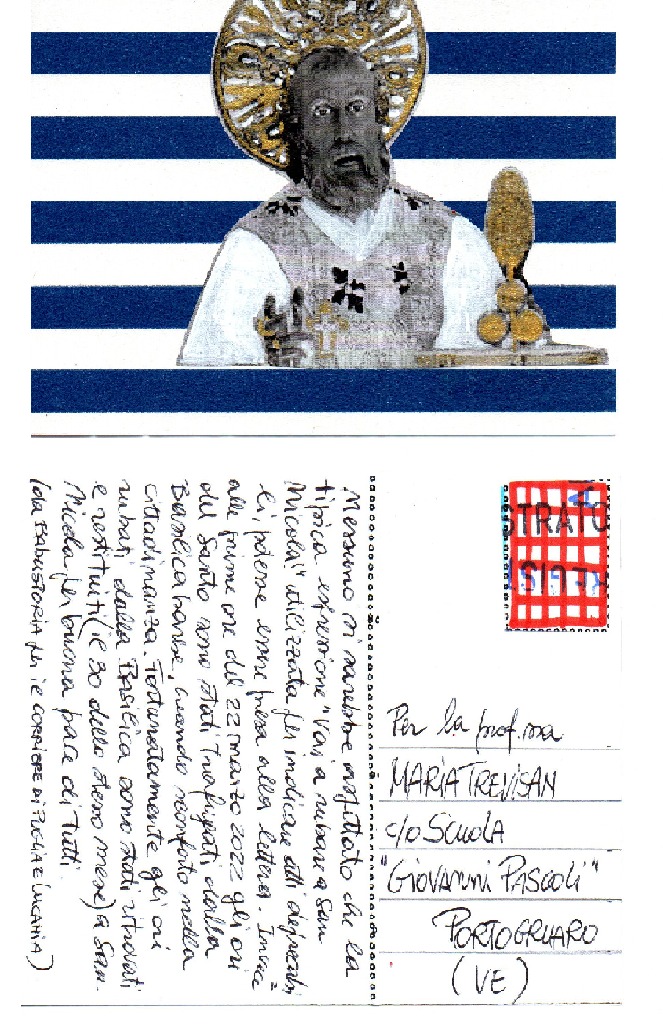 Nessuno si sarebbe aspettato che la
tipica espressione "Vai a rubare a San
Nicola" utilizzata per indicare atti deprecabi
li, potesse essere presa alla lettera. Invece
alle prime ore del 22 marzo 2022 gli ori
del Santo sono stati trafugati dalla
Basilica barese, creando sconforto nella
cittadinanza. Fortunatamente gli ori
rubati dalla Basilica sono stati ritrovati
e restituiti (il 30 dello stesso mese) a San
Nicola, per buona pace di tutti.
(da FABUSTORIA per il CORRIERE DI PUGLIA E LUCANIA)
STRATO
Per la prof.ssa
MARIA TREVISAN
c/o SCUOLA
"GIOVANNI PASCOLI"
PORTOGRUARO
(VE)